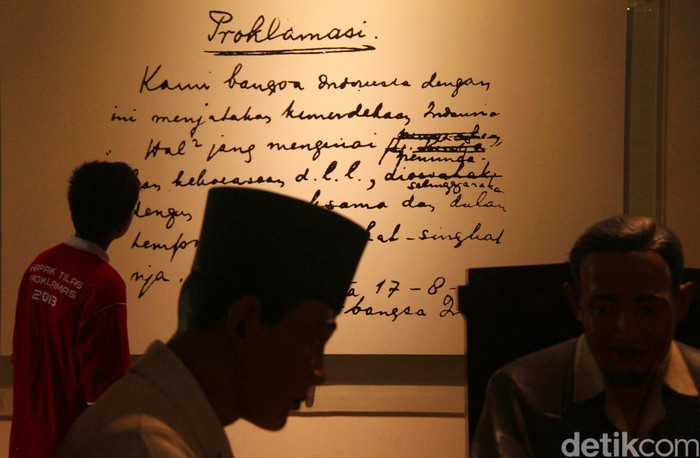 Proklamasi.
Kami bangsa Indonesia dengan
ini menjatakan kemerdekaan Indonesia
Hal² jang mengenai
peminda-
han kekoeasaan d.l.l.,
selenggarakan
dengan ksama dan dalam
tempo kat-singkat
nja.
ta 17-8-
bangsa In
NAPAK TILAS
PROKLAMAS
2013
detikcom